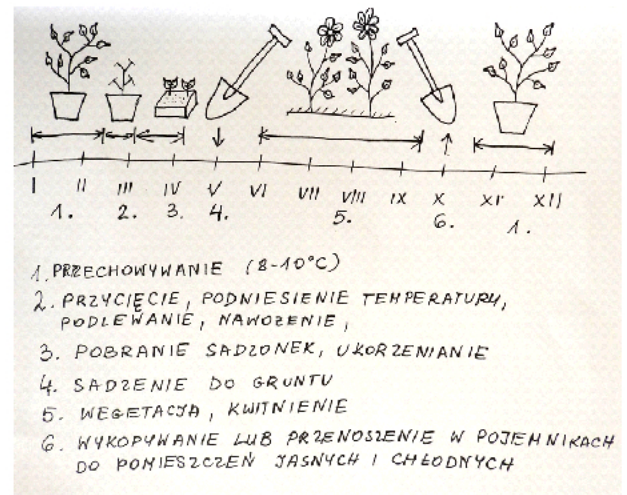 I II III IV V VI VII VIII IX X XI XII
1. 2. 3. 4. 5. 6. 1.
1. PRZECHOWYWANIE (8-10°C)
2. PRZYCIĘCIE, PODNIESIENIE TEMPERATURY,
PODLEWANIE, NAWOŻENIE,
3. POBRANIE SADZONEK, UKORZENIANIE
4. SADZENIE DO GRUNTU
5. WEGETACJA, KWITNIENIE
6. WYKOPYWANIE LUB PRZENOSZENIE W POJEMNIKACH
DO POMIESZCZEŃ JASNYCH I CHŁODNYCH